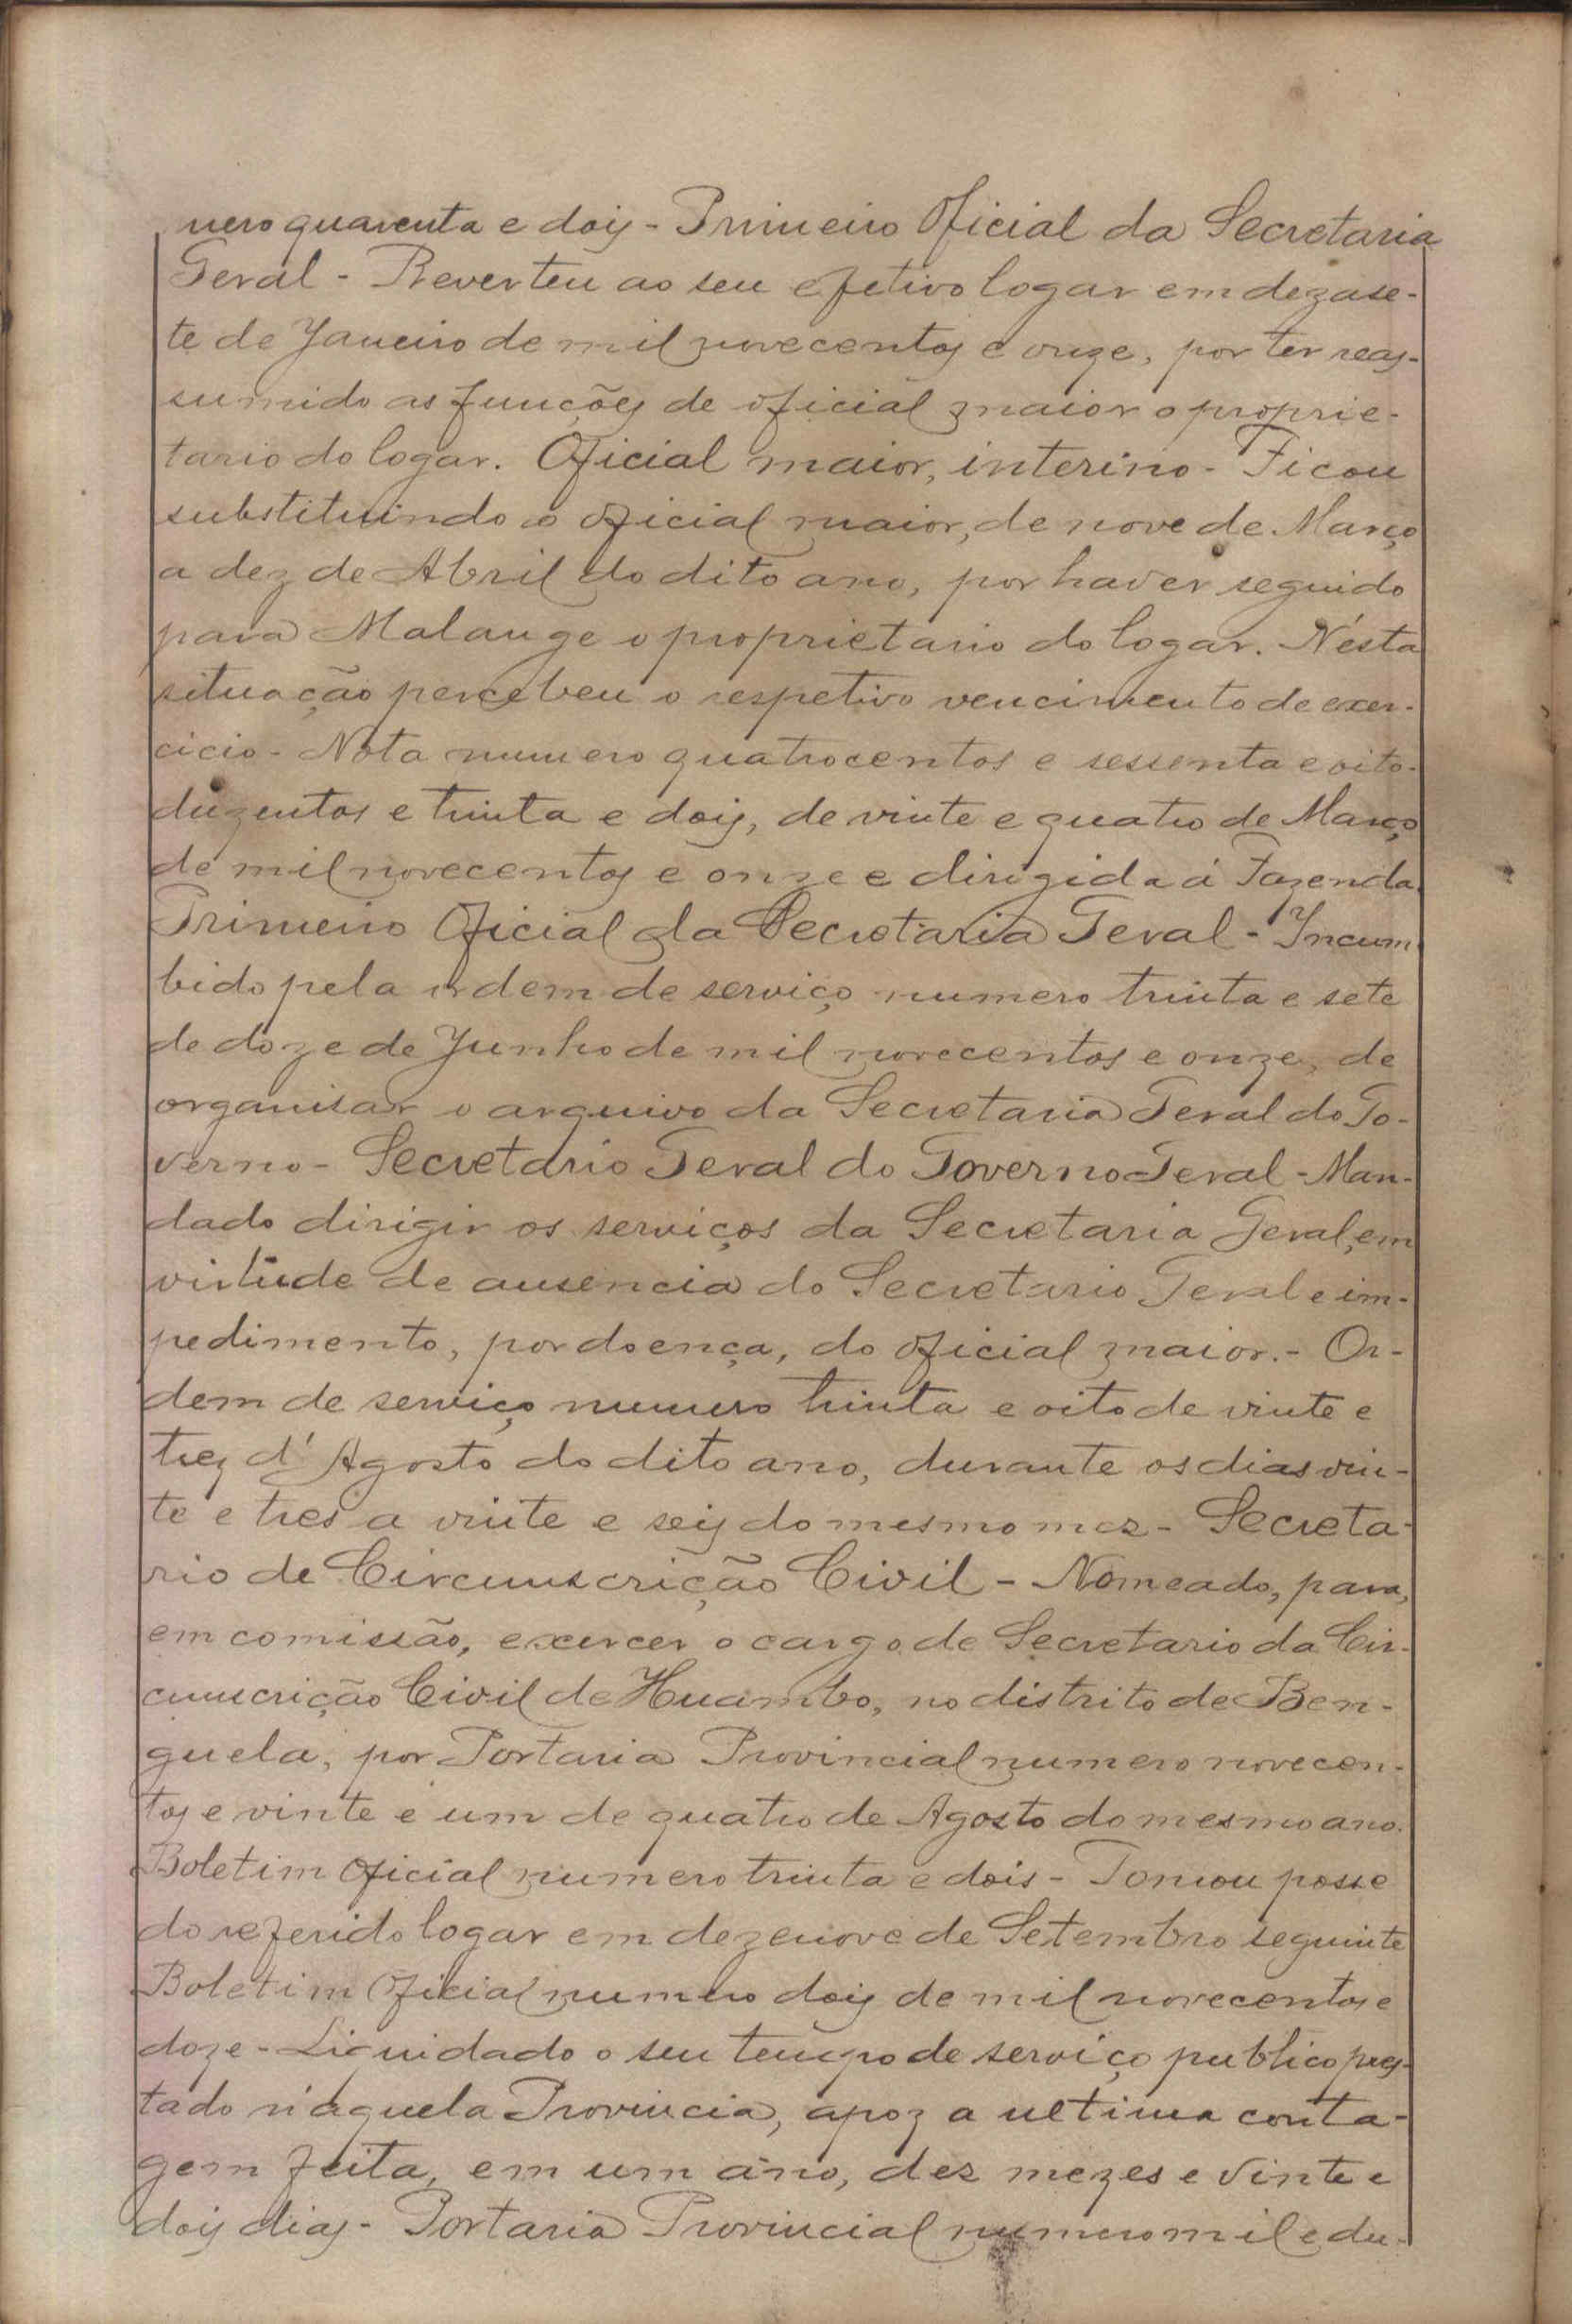 nero quarenta e dois - Primeiro Oficial da Secretaria
Geral - Reverteu ao seu efetivo logar em dezase-
te de Janeiro de mil novecentos e onze, por ter reas-
sumido as funções de oficial maior o proprie-
tario do logar. Oficial maior, interino - Ficou
substituindo o oficial maior, de nove de Março
a dez de Abril do dito ano, por haver seguido
para Malange o proprietario do logar. Nésta
situação percebeu o respetivo vencimento de exer-
cicio - Nota numero quatrocentos e sessenta e oito-
duzentos e trinta e dois, de vinte e quatro de Março
de mil novecentos e onze e dirigida á Fazenda.
Primeiro Oficial da Secretaria Geral - Incum-
bido pela ordem de serviço numero trinta e sete
de doze de Junho de mil novecentos e onze, de
organisar o arquivo da Secretaria Geral do Go-
verno - Secretario Geral do Governo Geral - Man-
dado dirigir os serviços da Secretaria Geral, em
virtude de ausencia do Secretario Geral e im-
pedimento, por doença, do oficial maior. - Or-
dem de serviço numero trinta e oito de vinte e
trez d'Agosto do dito ano, durante os dias vin-
te e tres a vinte e seis do mesmo mez - Secreta-
rio de Circunscrição Civil - Nomeado, para,
em comissão, exercer o cargo de Secretario da Cir-
cunscrição Civil de Huambo, no distrito de Ben-
guela, por Portaria Provincial numero novecen-
tos e vinte e um de quatro de Agosto do mesmo ano.
Boletim Oficial numero trinta e dois - Tomou posse
do referido logar em dezenove de Setembro seguinte
Boletim Oficial numero dois de mil novecentos e
doze - Liquidado o seu tempo de serviço publico pres-
tado n'aquela Provincia, apoz a ultima conta-
gem feita, em um ano, dez mezes e vinte e
dois dias - Portaria Provincial numero mil e du-